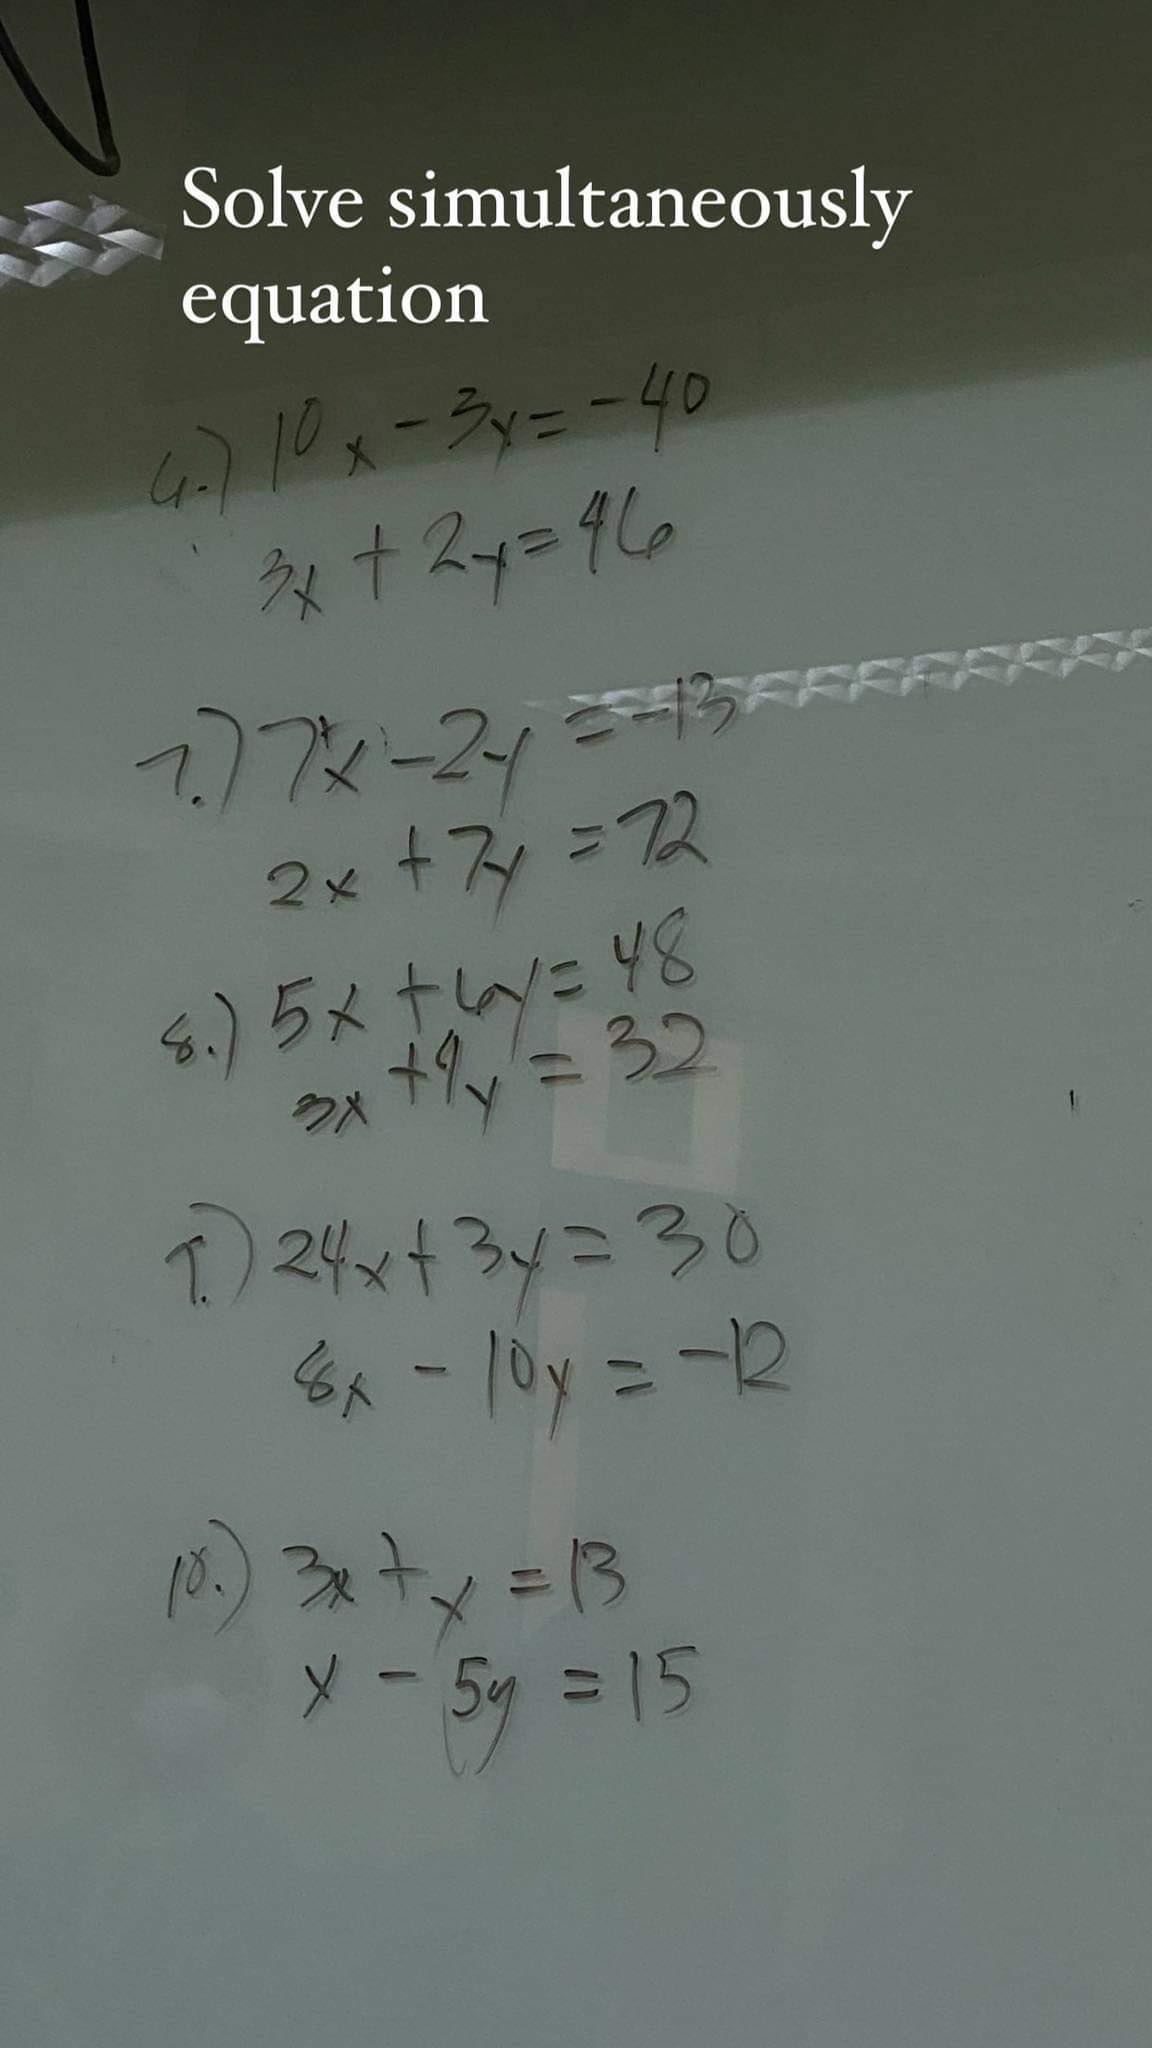 Solve simultaneously
equation
6.) 10x - 3y = -40
3x + 2y = 46
7.) 7x - 2y = -13
2x + 7y = 72
8.) 5x + 6y = 48
3x + 4y = 32
9.) 24x + 3y = 30
8x - 10y = -12
10.) 3x + y = 13
x - 5y = 15